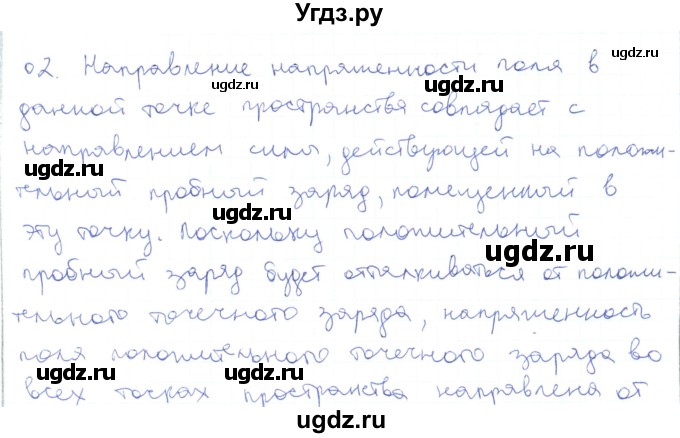 Угдз.ру
02. Направление напряженности поля в
данной точке пространства совпадает с
направлением силы, действующей на положи-
тельный пробный заряд, помещенный в
эту точку. Поскольку положительный
пробный заряд будет отталкиваться от положи-
тельного точечного заряда, напряженность
поля положительного точечного заряда во
всех точках пространства направлена от
ugdz.ru
ugdz.ru
ugdz.ru
ugdz.ru
ugdz.ru
ugdz.ru
ugdz.ru
ugdz.ru
ugdz.ru
ugdz.ru
ugdz.ru